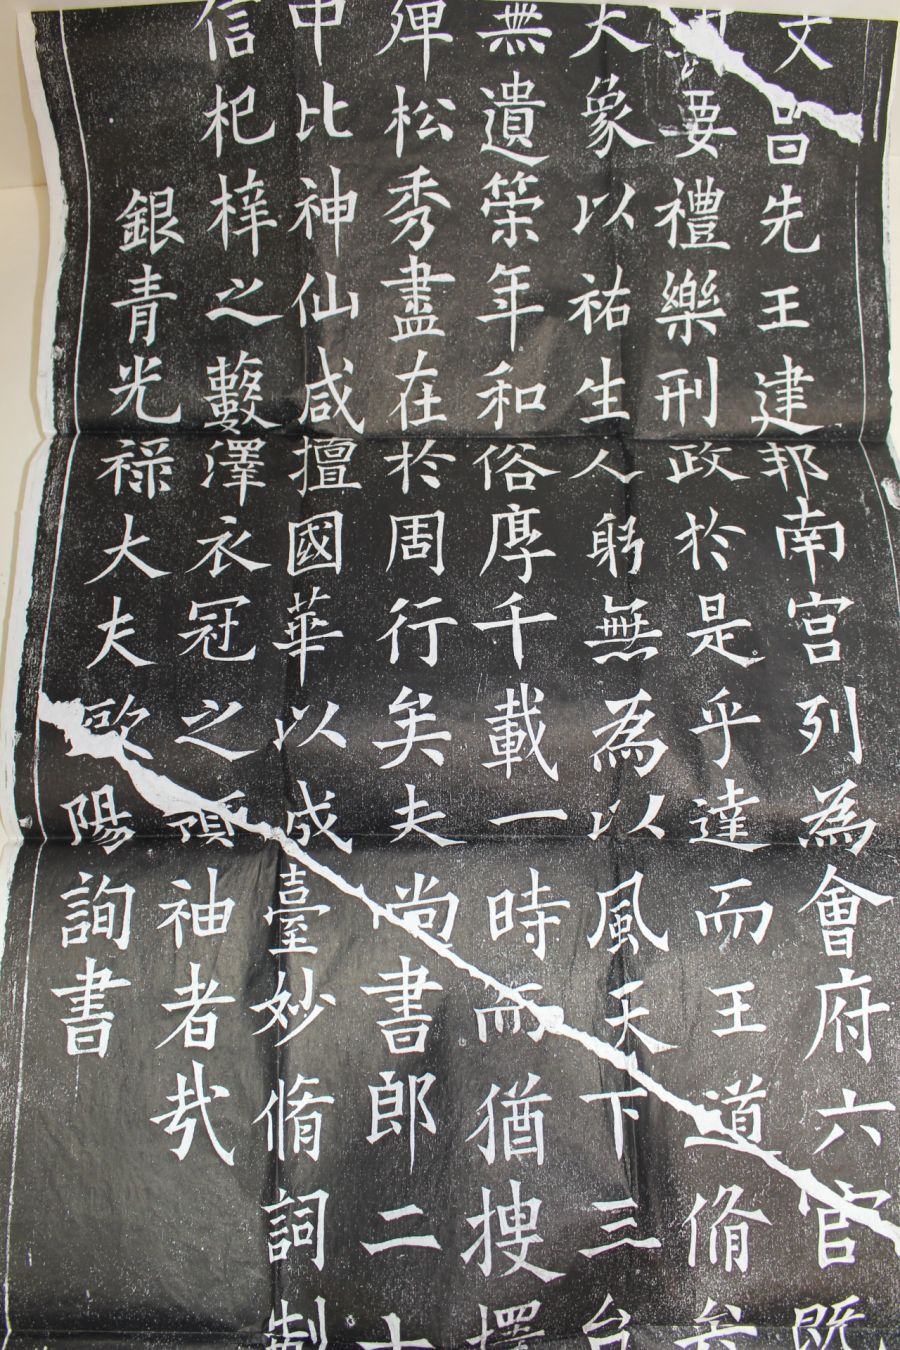 文昌先王建邦南宮列為會府六官既
要禮樂刑政於是乎達而王道脩矣
大象以祐生人躬無為以風天下三台
無遺筞年和俗厚千載一時而猶搜擇
殫松秀盡在於周行矣夫尚書郎二十
中比神仙咸擅國華以成臺妙脩詞制
信杞梓之藪澤衣冠之領袖者哉
銀青光禄大夫歐陽詢書